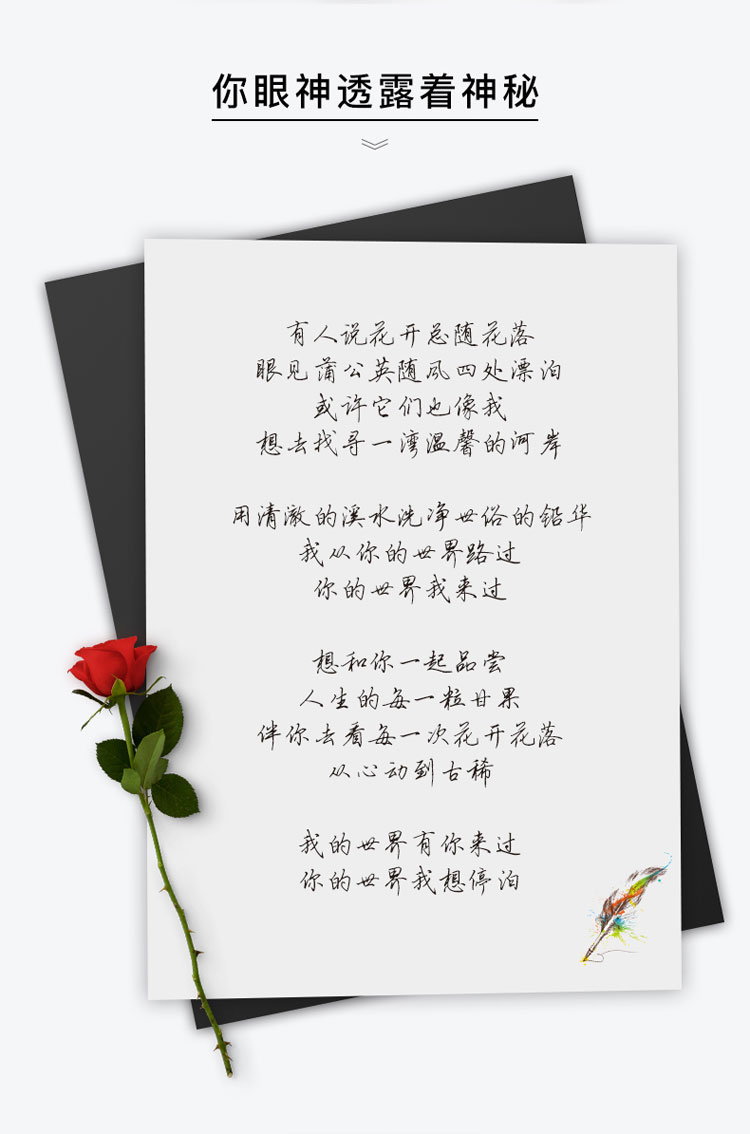 你眼神透露着神秘
有人说花开总随花落
眼见蒲公英随风四处漂泊
或许它们也像我
想去找寻一湾温馨的河岸
用清澈的溪水洗净世俗的铅华
我从你的世界路过
你的世界我来过
想和你一起品尝
人生的每一粒甘果
伴你去看每一次花开花落
从心动到古稀
我的世界有你来过
你的世界我想停泊